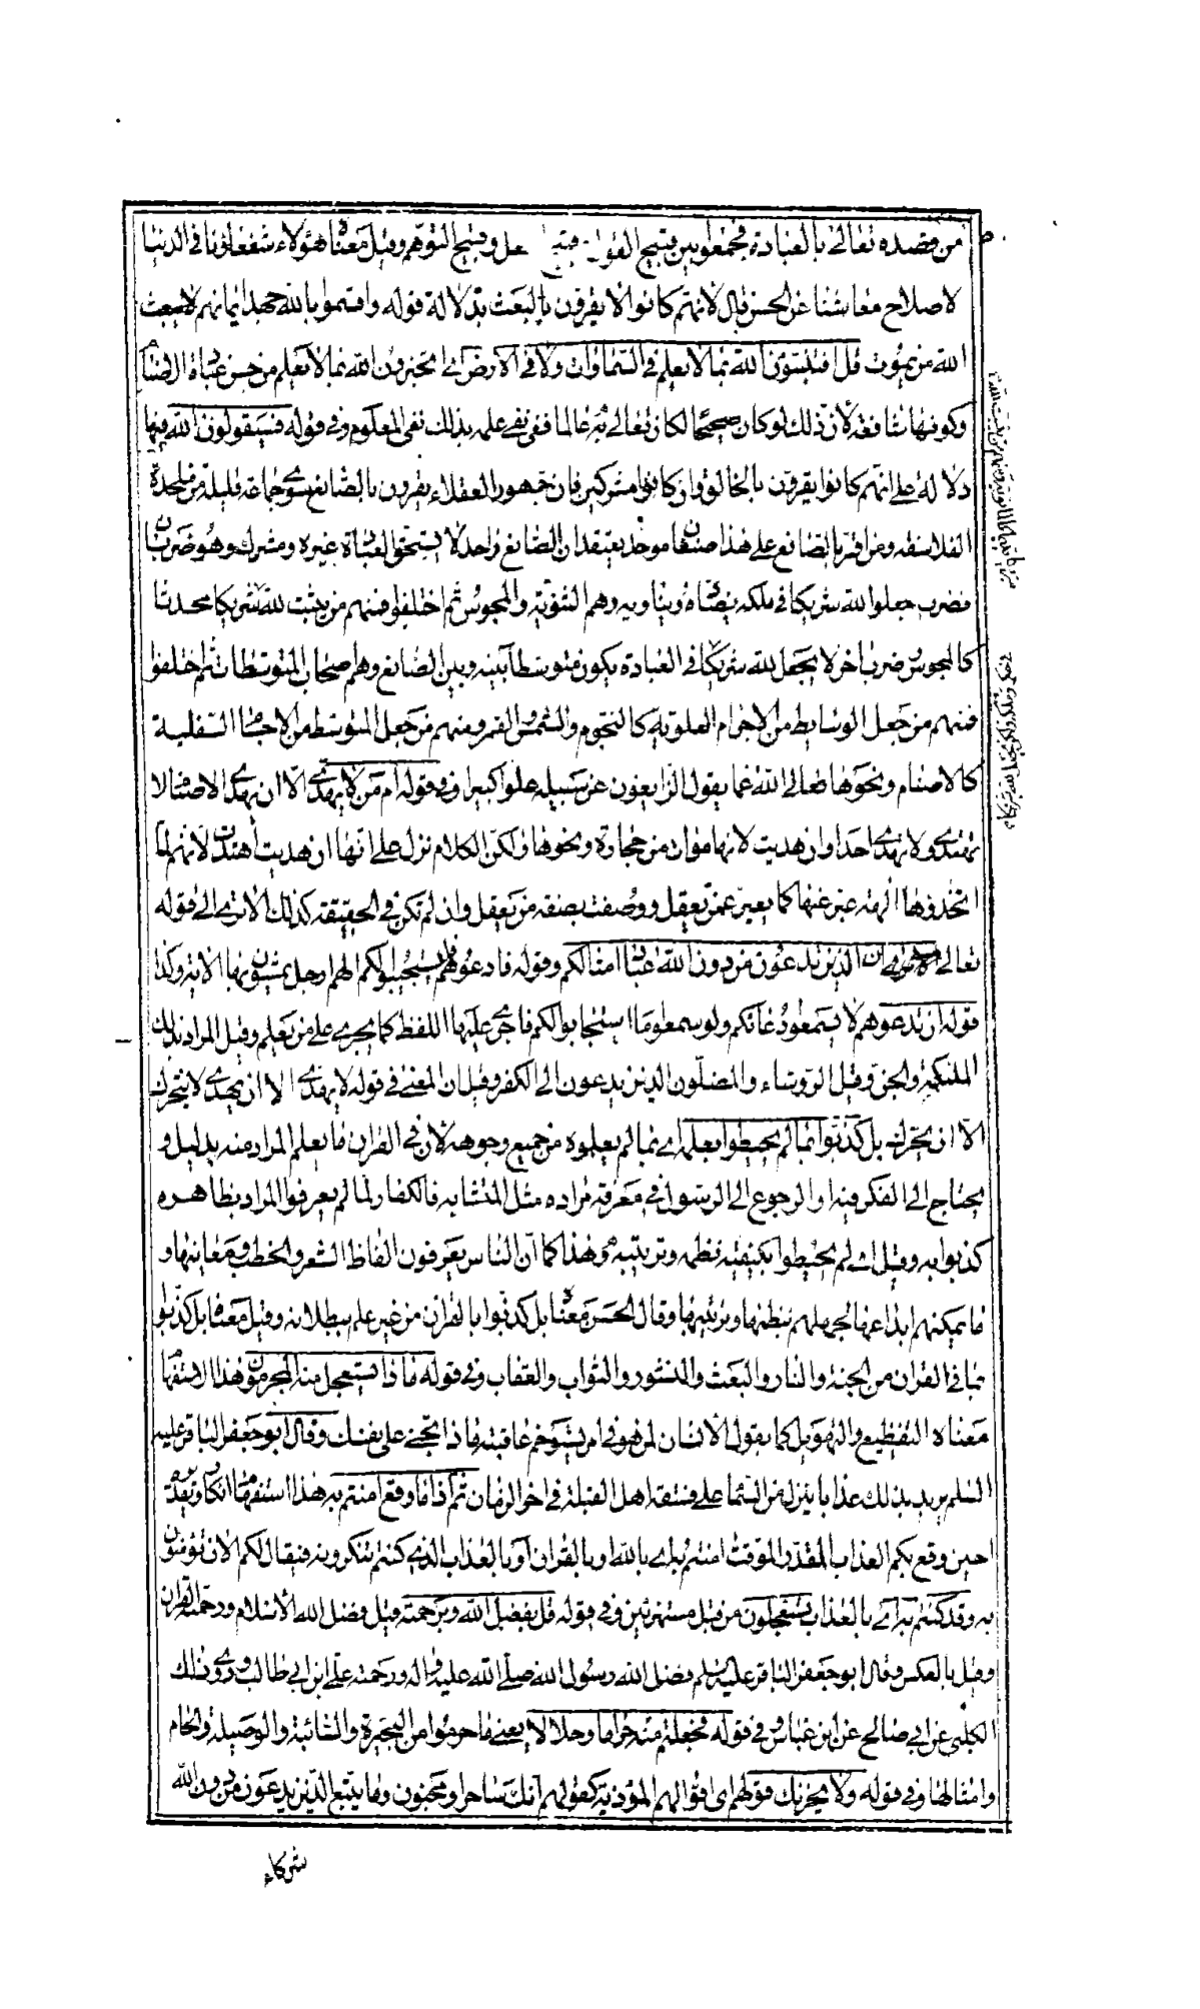 من قصده تعالى بالعبادة فجمعوا بين قبيح القول قبيح وقبيح التوهم وقيل معناه هؤلاء شفعاؤنا في الدنيا
لاصلاح معاشنا عن الحسن قال لانهم كانوا لا يقرون بالبعث بدلالة قوله واقسموا بالله جهد ايمانهم لا يبعث
الله من يموت قل اتنبئون الله بما لا يعلم في السماوات ولا في الارض اي اتخبرون الله بما لا يعلم من حسن عبادة الاصنام
وكونها شافعة لان ذلك لو كان صحيحا لكان تعالى به عالما ففي نفي علمه بذلك نفي المعلوم وفي قوله فسيقولون الله فيها
دلالة على انهم كانوا يقرون بالخالق وان كانوا مشركين فان جمهور العقلاء يقرون بالصانع سوى جماعة قليلة من ملحدة
الفلاسفة ومن اقر بالصانع على هذا صنفان موحد يعتقد ان الصانع واحد لا يستحق العبادة غيره ومشرك وهو ضربان
فضرب جعلوا لله شريكا في ملكه يضاده ويناويه وهم الثنوية والمجوس ثم اختلفوا فمنهم من يثبت لله شريكا محدثا
كالمجوس وضرب اخر لا يجعل لله شريكا في العبادة يكون متوسطا بينه وبين الصانع وهم اصحاب المتوسطات ثم اختلفوا
فمنهم من جعل الوسايط من الاجرام العلوية كالنجوم والشمس والقمر ومنهم من جعل المتوسط من الاجسام السفلية
كالاصنام ونحوها تعالى الله عما يقول الزايغون عن سبيله علوا كبيرا وفي قوله ام من لا يهدي الا ان يهدى الاصنام لا
تهتدي ولا تهدي احدا وان هديت لانها موات من حجارة ونحوها ولكن الكلام نزل على انها ان هديت اهتدت لانهم لما
اتخذوها الهة عبر عنها كما يعبر عمن يعقل ووصفت بصفة من يعقل وان لم تكن في الحقيقة كذلك الا ترى الى قوله
تعالى ان الذين تدعون من دون الله عباد امثالكم وقوله فادعوهم فليستجيبوا لكم الهم ارجل يمشون بها الاية وكذا
قوله ان تدعوهم لا يسمعوا دعائكم ولو سمعوا ما استجابوا لكم فاجرى عليها اللفظ كما يجرى على من يعلم وقيل المراد بذلك
الملئكة والجن وقيل الرؤساء والمضلون الذين يدعون الى الكفر وقيل ان المعنى في قوله لا يهدي الا ان يهدى لا يتحرك
الا ان يحرك بل كذبوا بما لم يحيطوا بعلمه اي بما لم يعلموه من جميع وجوهه لان في القران ما يعلم المراد منه بدليل و
يحتاج الى الفكر فيه او الرجوع الى الرسول في معرفة مراده مثل المتشابه فالكفار لما لم يعرفوا المراد بظاهره
كذبوا به وقيل اي لم يحيطوا بكيفية نظمه وترتيبه وهذا كما ان الناس يعرفون الفاظ الشعر والخطب ومعانيها و
ما يمكنهم ابداعها لجهلهم بنظمها وترتيبها وقال الحسن معناه بل كذبوا بالقران من غير علم ببطلانه وقيل معناه بل كذبوا
بما في القران من الجنة والنار والبعث والنشور والثواب والعقاب وفي قوله ماذا يستعجل منه المجرمون هذا الاستفهام
معناه التفظيع والتهويل كما يقول الانسان لمن هو في امر يستوخم عاقبته ماذا تجني على نفسك وقال ابو جعفر الباقر عليه
السلم يريد بذلك عذابا ينزل من السماء على فسقة اهل القبلة في اخر الزمان ثم اذا ما وقع امنتم به هذا استفهام انكار وتقديره
احين وقع بكم العذاب المقدر الموقت امنتم به اي بالله او بالقران او بالعذاب الذي كنتم تنكرونه فيقال لكم الان تؤمنون
به وقد كنتم به اي بالعذاب تستعجلون من قبل مستهزئين وفي قوله قل بفضل الله وبرحمته قيل فضل الله الاسلام ورحمته القران
وقيل بالعكس وقال ابو جعفر الباقر عليه السلم فضل الله رسول الله صلى الله عليه واله ورحمته علي ابن ابي طالب وروى ذلك
الكلبي عن ابي صالح عن ابن عباس وفي قوله فجعلتم منه حراما وحلالا يعني ما حرموا من البحيرة والسائبة والوصيلة والحام
وامثالها وفي قوله ولا يحزنك قولهم اي اقوالهم المؤذية كقولهم انك ساحر او مجنون وما يتبع الذين يدعون من دون الله
شركاء